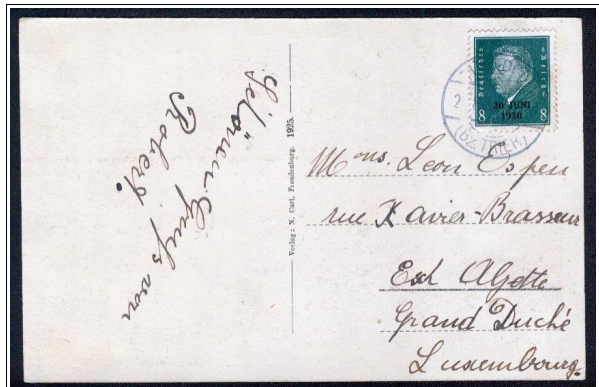 Schönen Gruß von
Robert.
Verlag: N. Carl, Freudenburg. 1925.
Deutsches Reich
30. JUNI
1930
8 8
(BZ. TRIER)
Mons. Leon Espen
rue Xavier-Brasseur
Esch Alzette
Grand Duché
Luxembourg.